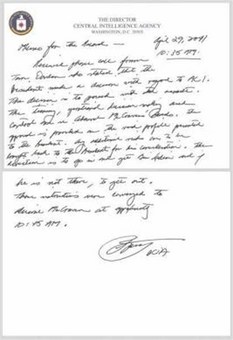 THE DIRECTOR
CENTRAL INTELLIGENCE AGENCY
WASHINGTON, D.C. 20505
Apr 29, 2011
10:35 AM
Memo for the Record —
Received phone call from
Tom Donilon who stated that the
President made a decision with regard to AC1
The decision is to proceed with the assault.
The timing, operational decision making and
control are in Admiral McRaven's hands. The
approval is provided on the risk profile presented
to the President. Any additional risks are to be
brought back to the President for his consideration. The
direction is to go in and get Bin Laden and if
he is not there, to get out.
Those instructions were conveyed to
Admiral McRaven at approximately
10:45 AM.
DCIA